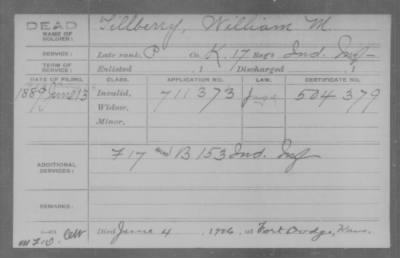 DEAD
NAME OF SOLDIER: Tillberry, William M.
SERVICE: Late rank, P Co. K, 17 Reg't Ind. Inf
TERM OF SERVICE: Enlisted , 1 Discharged , 1
DATE OF FILING. CLASS. APPLICATION NO. LAW. CERTIFICATE NO.
1889 June 13 Invalid, 711373 504379
Widow,
Minor,
ADDITIONAL SERVICES: F 17 and B 153 Ind. Inf
REMARKS:
Died June 4 1906, at Fort Dodge, Kans.